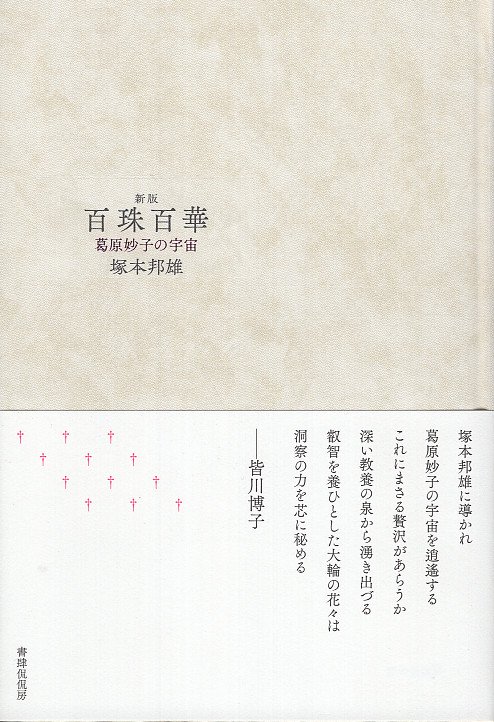 新版
百珠百華
葛原妙子の宇宙
塚本邦雄
塚本邦雄に導かれ
葛原妙子の宇宙を逍遙する
これにまさる贅沢があらうか
深い教養の泉から湧き出づる
叡智を養ひとした大輪の花々は
洞察の力を芯に秘める
──皆川博子
† † †
† † †
† † †
† † †
書肆侃侃房